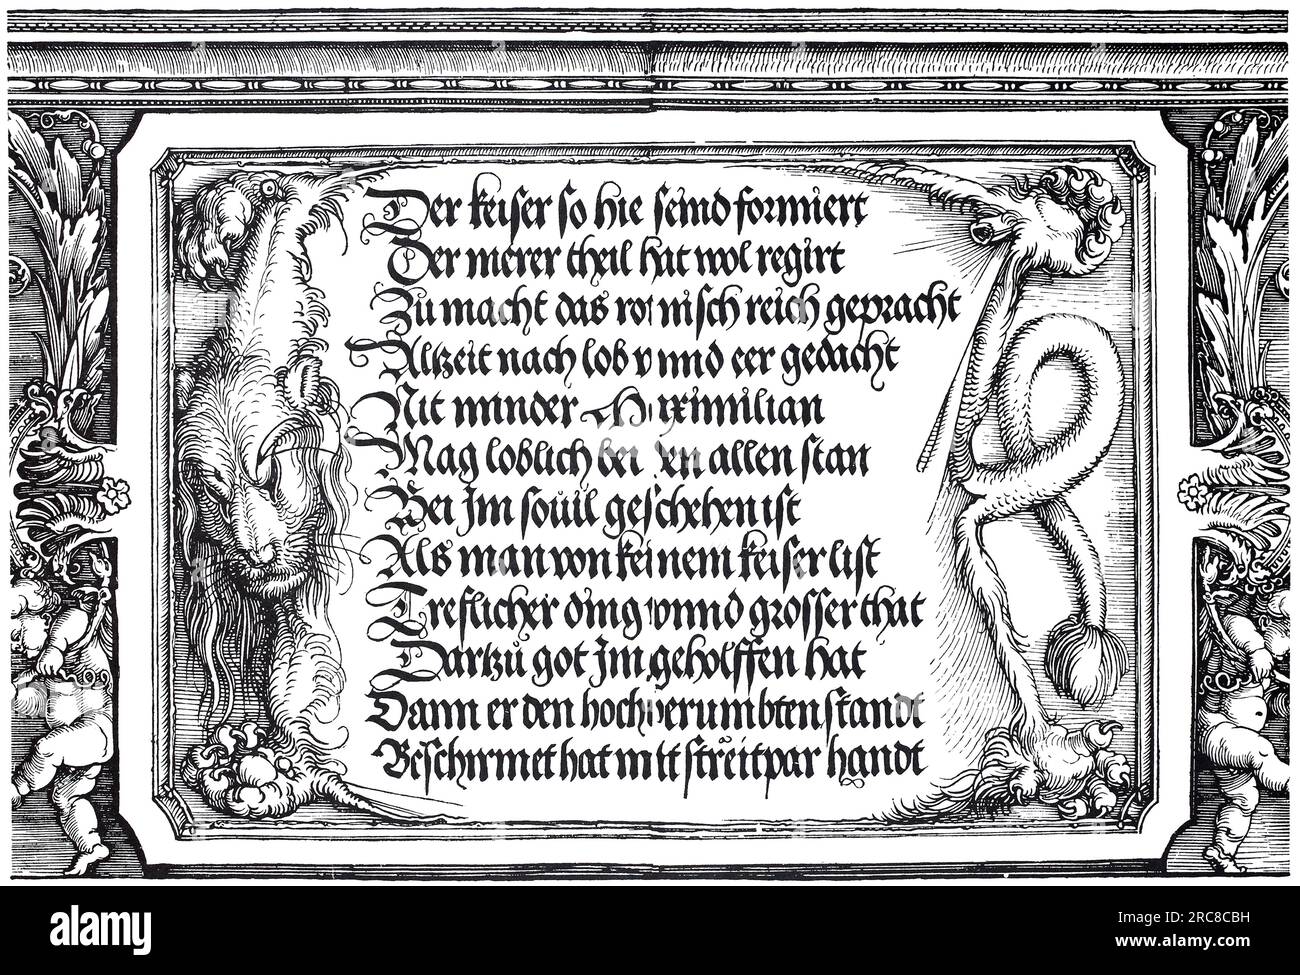 Der keiser so hie seind formiert
Der merer theil hat wol regirt
Zů macht das romisch reich gepracht
Altzeit nach lob vnnd eer gedacht
Nit minder Maximilian
Mag loblich bei den allen stan
Bei Im souil geschehen ist
Als man von keinem keiser list
Treflicher ding vnnd grosser that
Dartzů got Im geholffen hat
Dann er den hochberumbten standt
Beschirmet hat mit streitpar handt
alamy
Image ID: 2RC8CBH
www.alamy.com